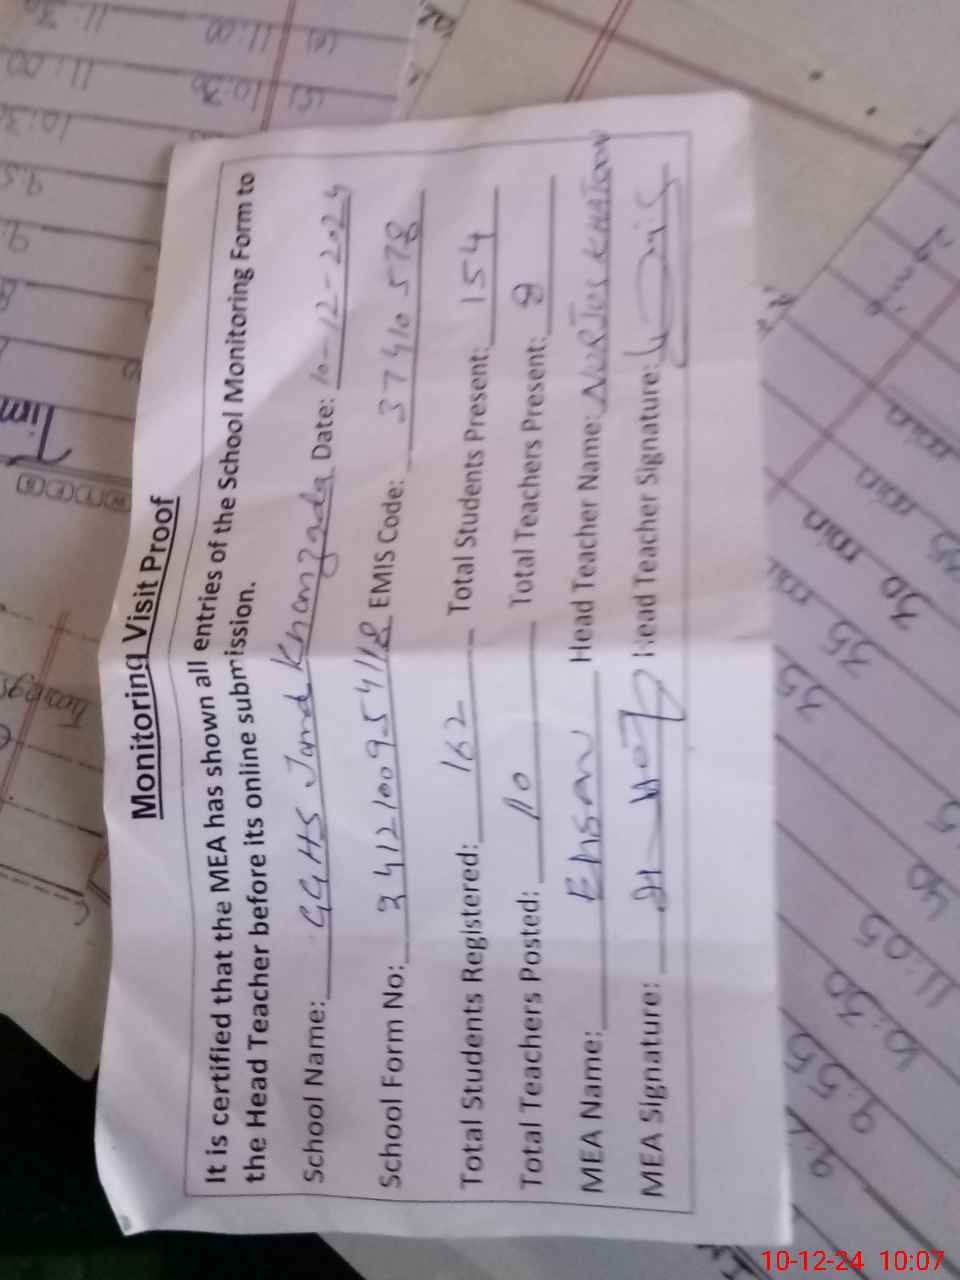 Monitoring Visit Proof
It is certified that the MEA has shown all entries of the School Monitoring Form to
the Head Teacher before its online submission.
School Name: GGHS Jand Khanzada Date: 10-12-2024
School Form No: 3412100954118 EMIS Code: 37410578
Total Students Registered: 162 Total Students Present: 154
Total Teachers Posted: 10 Total Teachers Present: 8
MEA Name: Ehsan Head Teacher Name: KHATOON
MEA Signature: Head Teacher Signature:
Tim
11:00
10:30
9.55
10:30
11:05
40
35 min
30 min
10-12-24 10:07